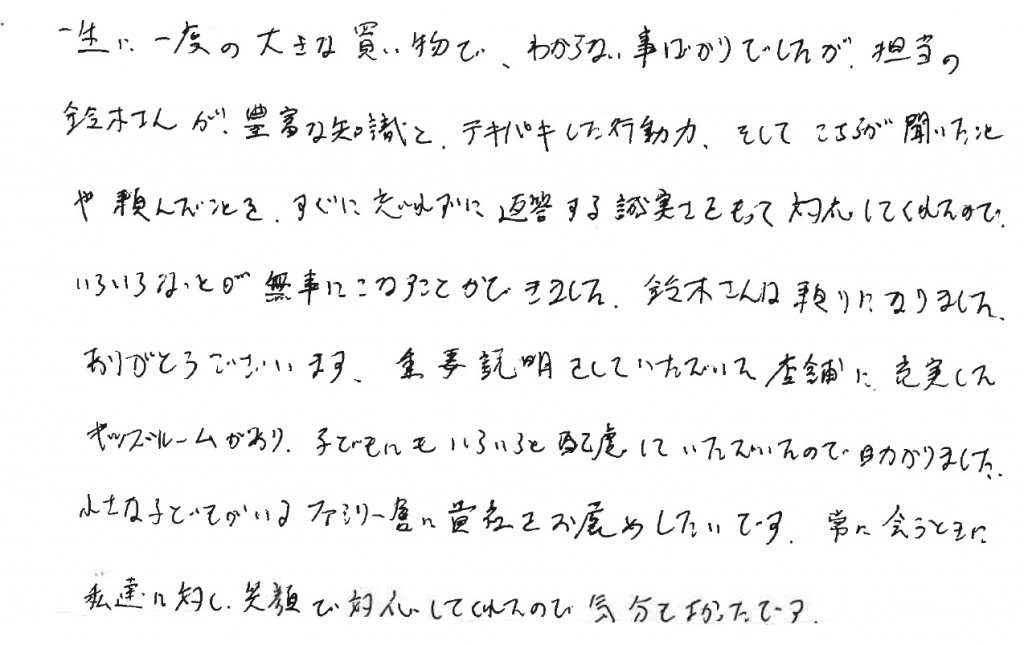 一生に一度の大きな買い物で、わからない事ばかりでしたが、担当の
鈴木さんが、豊富な知識と、テキパキした行動力、そしてこちらが聞いたこと
や頼んだことを、すぐに忘れずに返答する誠実さをもって対応してくれたので、
いろいろなことが無事にこなすことができました。鈴木さんは頼りになりました。
ありがとうございます。重要説明をしていただいた店舗に、充実した
キッズルームがあり、子どもにもいろいろと配慮していただいたので助かりました。
小さな子どもがいるファミリー層に貴社をお薦めしたいです。常に会うときに
私達に対し、笑顔で対応してくれたので気分もよかったです。